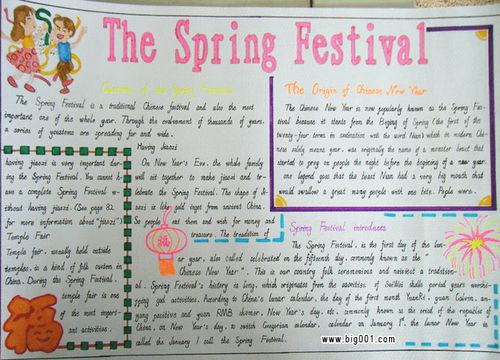 The Spring Festival
Customs of the Spring Festival
The Spring Festival is a traditional Chinese festival and also the most
important one of the whole year. Through the evolvement of thousands of years,
a series of customs are spreading far and wide.
Having Jiaozi
On New Year's Eve, the whole family
will sit together to make jiaozi and
celebrate the Spring Festival. The shape of
Jiaozi is like gold ingot from ancient China.
So people eat them and wish for money and
treasure. The tradition of
having jiaozi is very important
during the Spring Festival. You cannot
have a complete Spring Festival
without having jiaozi. (See page 82
for more information about "jiaozi")
Temple Fair
Temple fair, usually held outside
temples, is a kind of folk custom in
China. During the Spring Festival,
temple fair is one
of the most
important activities.
福
The Origin of Chinese New Year
The Chinese New Year is now popularly known as the Spring
Festival because it starts from the Begining of Spring (the first of the
twenty-four terms in coodination with the
word Nian, which in modern
Chinese solely means year, was originally the name of a monster beast that
started to prey on people the night before the beginning of a new year.
one legend goes that the beast Nian had a very big mouth that
would swallow a great many people with one bite. People were
福
Spring Festival introduces
The Spring Festival, is the first day of the
lunar year, also called celebrated on the fifteenth day, commonly known as the
"Chinese New Year". This is our country folk ceremonious and
Spring Festival's history is long, which originates from the sacrifices of
god activities. According to China's lunar calendar, the day of the first month
New Year's day, etc, commonly known as the
China, on New Year's day, to switch Gregorian calendar, calendar on January 1st, the lunar New Year is
called the January 1 call the Spring Festival.
www.big001.com